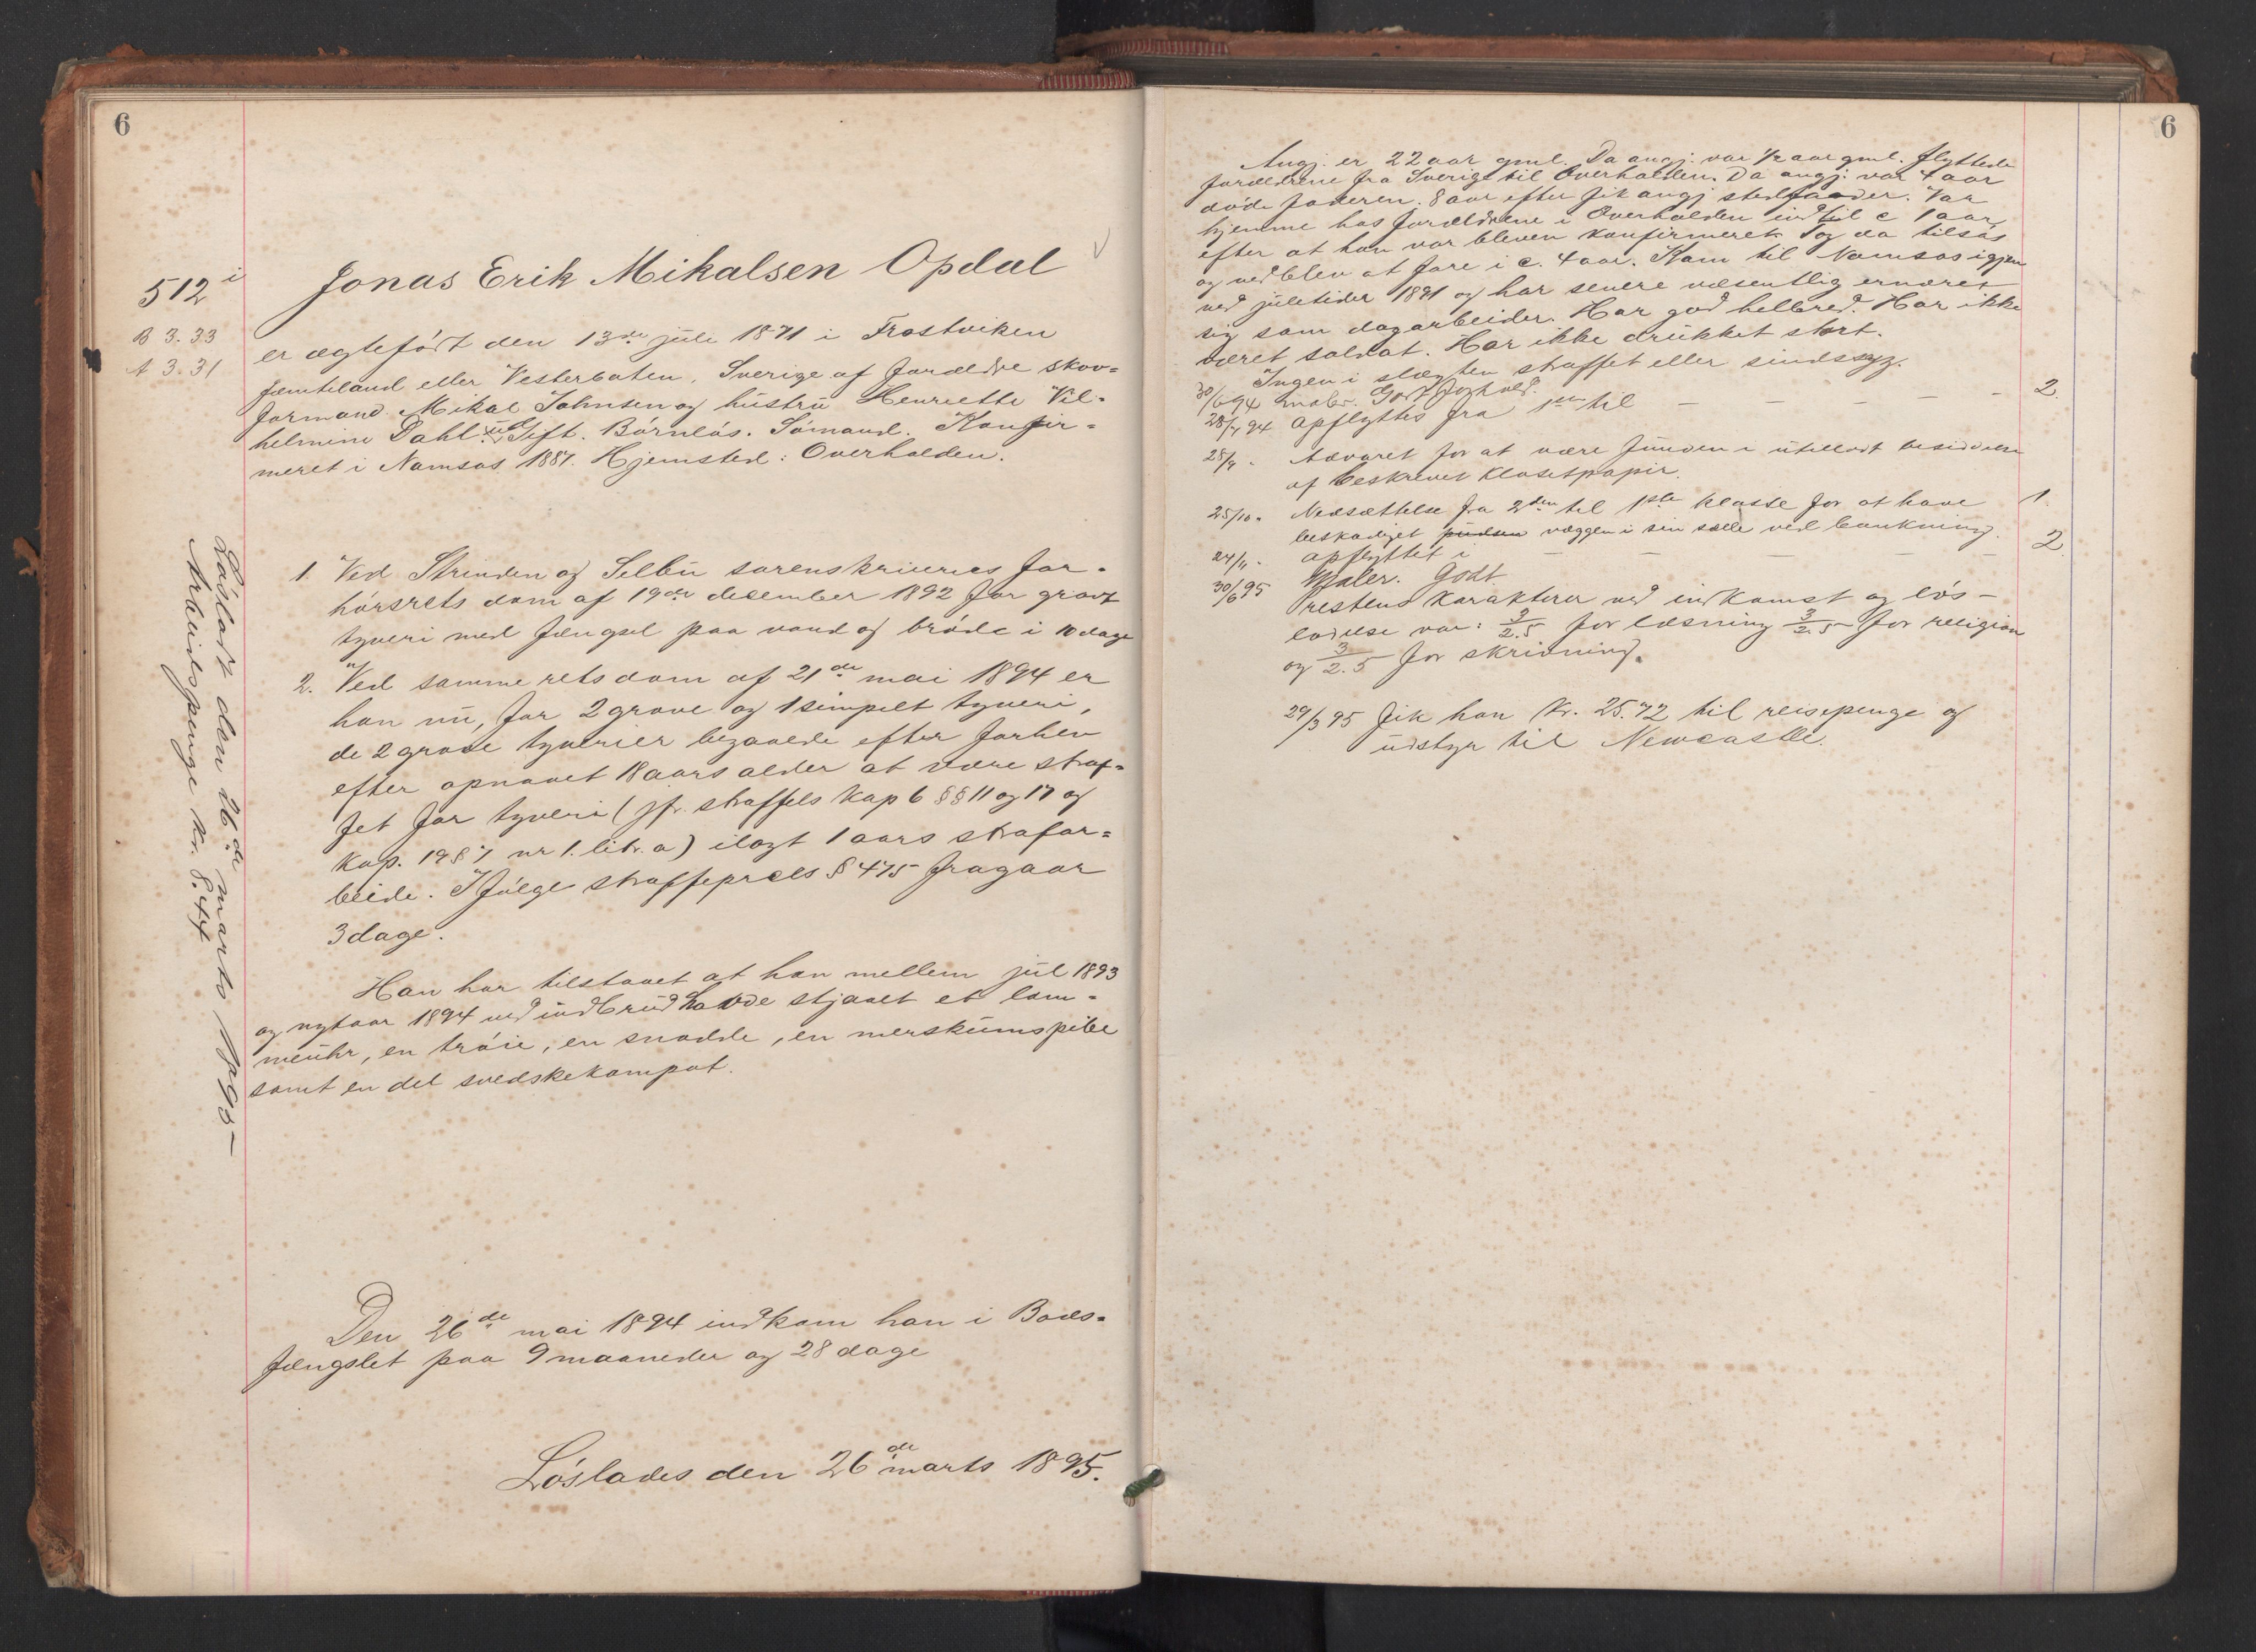 6
512 i
B 3.33
A 3.31
Jonas Erik Mikalsen Opdal
er ægtefødt den 13de juli 1871 i Frostviken
Jemteland eller Vesterboten, Sverige af forældre skov=
formand Mikal Johnsen og hustru Henriette Vil-
helmine Dahl. Ugift. Børnløs. Sømand. Konfir=
meret i Namsos 1887. Hjemsted: Overhalden.
1. Ved Strinden og Selbu sorenskriveries for-
hørsrets dom af 19de december 1892 for grovt
tyveri med fængsel paa vand og brød i 10 dage
2. Ved samme rets dom af 21de mai 1894 er
han nu, for 2 grove og 1 simpelt tyveri,
de 2 grove tyverier begaaede efter forhen
efter opnaaet 18 aars alder at være straf=
fet for tyveri (jfr. straffels kap 6 §§ 11 og 17 og
kap. 19 § 7 nr 1. litr. a) ilagt 1 aars strafar=
beide. Ifølge straffeprcls § 475 fragaar
3 dage.
Han har tilstaaet at han mellem jul 1893
og nytaar 1894 ved indbrud havde stjaalet et lom=
meuhr, en trøie, en snadde, en merskumspibe
samt en del svedskekompot.
Den 26de mai 1894 indkom han i Bods=
fængslet paa 9 maaneder og 28 dage
Løslades den 26de marts 1895.
Løsladt den 26de marts 1895
Arbeidspenge kr. 8.44
6
Angj. er 22 aar gml. Da angj. var 1/2 aar gml. flyttede
forældrene fra Sverige til Overhalden. Da angj. var 4 aar
døde faderen. 8 aar efter fik angj stedfader. Var
hjemme hos forældrene i Overhalden indtil c 1 aar
efter at han var bleven konfirmeret og da tilsøs
og vedblev at fare i c. 4 aar. Kom til Namsos igjen
ved juletider 1891 og har senere væsentlig ernæret
sig som dagarbeider. Har god helbred. Har ikke
været soldat. Har ikke drukket stort.
Ingen i slægten straffet eller sindssyg.
30/6 94 maler. Godt forhold.
28/7 94 Opflyttes fra 1ste til — — — — — 2.
28/9 " Advaret for at være funden i utilladt besiddelse
af beskrevet klosetpapir.
25/10 " Nedsættelse fra 2den til 1ste klasse for at have 1.
beskadiget pudsen væggen i sin celle ved bankning.
24/11 " opflyttet i — — — — 2.
30/6 95 Maler. Godt.
Prestens karakterer ved indkomst og løs-
ladelse var: 3/2.5 for læsning 3/2.5 for religion
og 3/2.5 for skrivning.
29/3 95 fik han Kr. 25.72 til reisepenge og
udstyr til Newcastle.